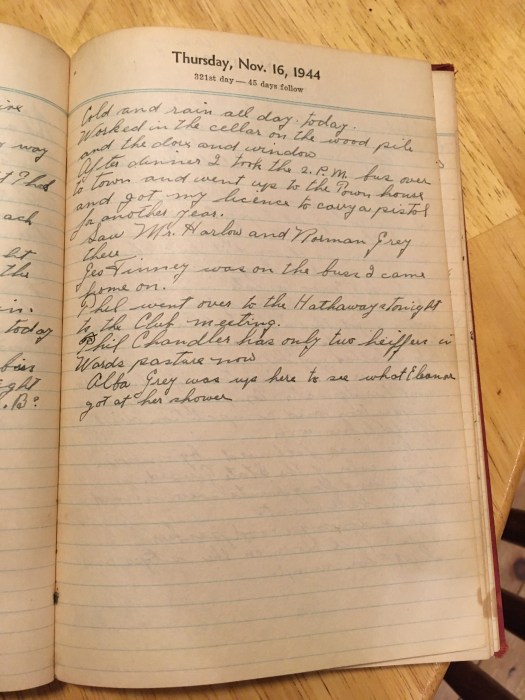 Thursday, Nov. 16, 1944
321st day — 45 days follow
Cold and rain all day today.
Worked in the cellar on the wood pile
and the door and window
After dinner I took the 2. P.M. bus over
to town and went up to the Town house
and got my licence to carry a pistol
for another year.
Saw Mr. Harlow and Norman Grey
there
Geo Finney was on the buss I came
home on.
Phel went over to the Hathaways tonight
to the Club meeting.
Phil Chandler has only two heiffers in
Words pasture now
Alba Grey was up here to see what Eleanor
got at her shower
way
ach
the
today
ight
. B?